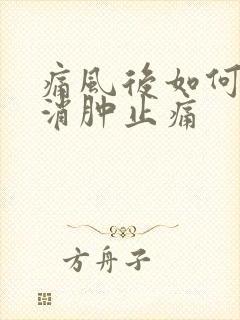 痛風後如何
消肿止痛
方舟子